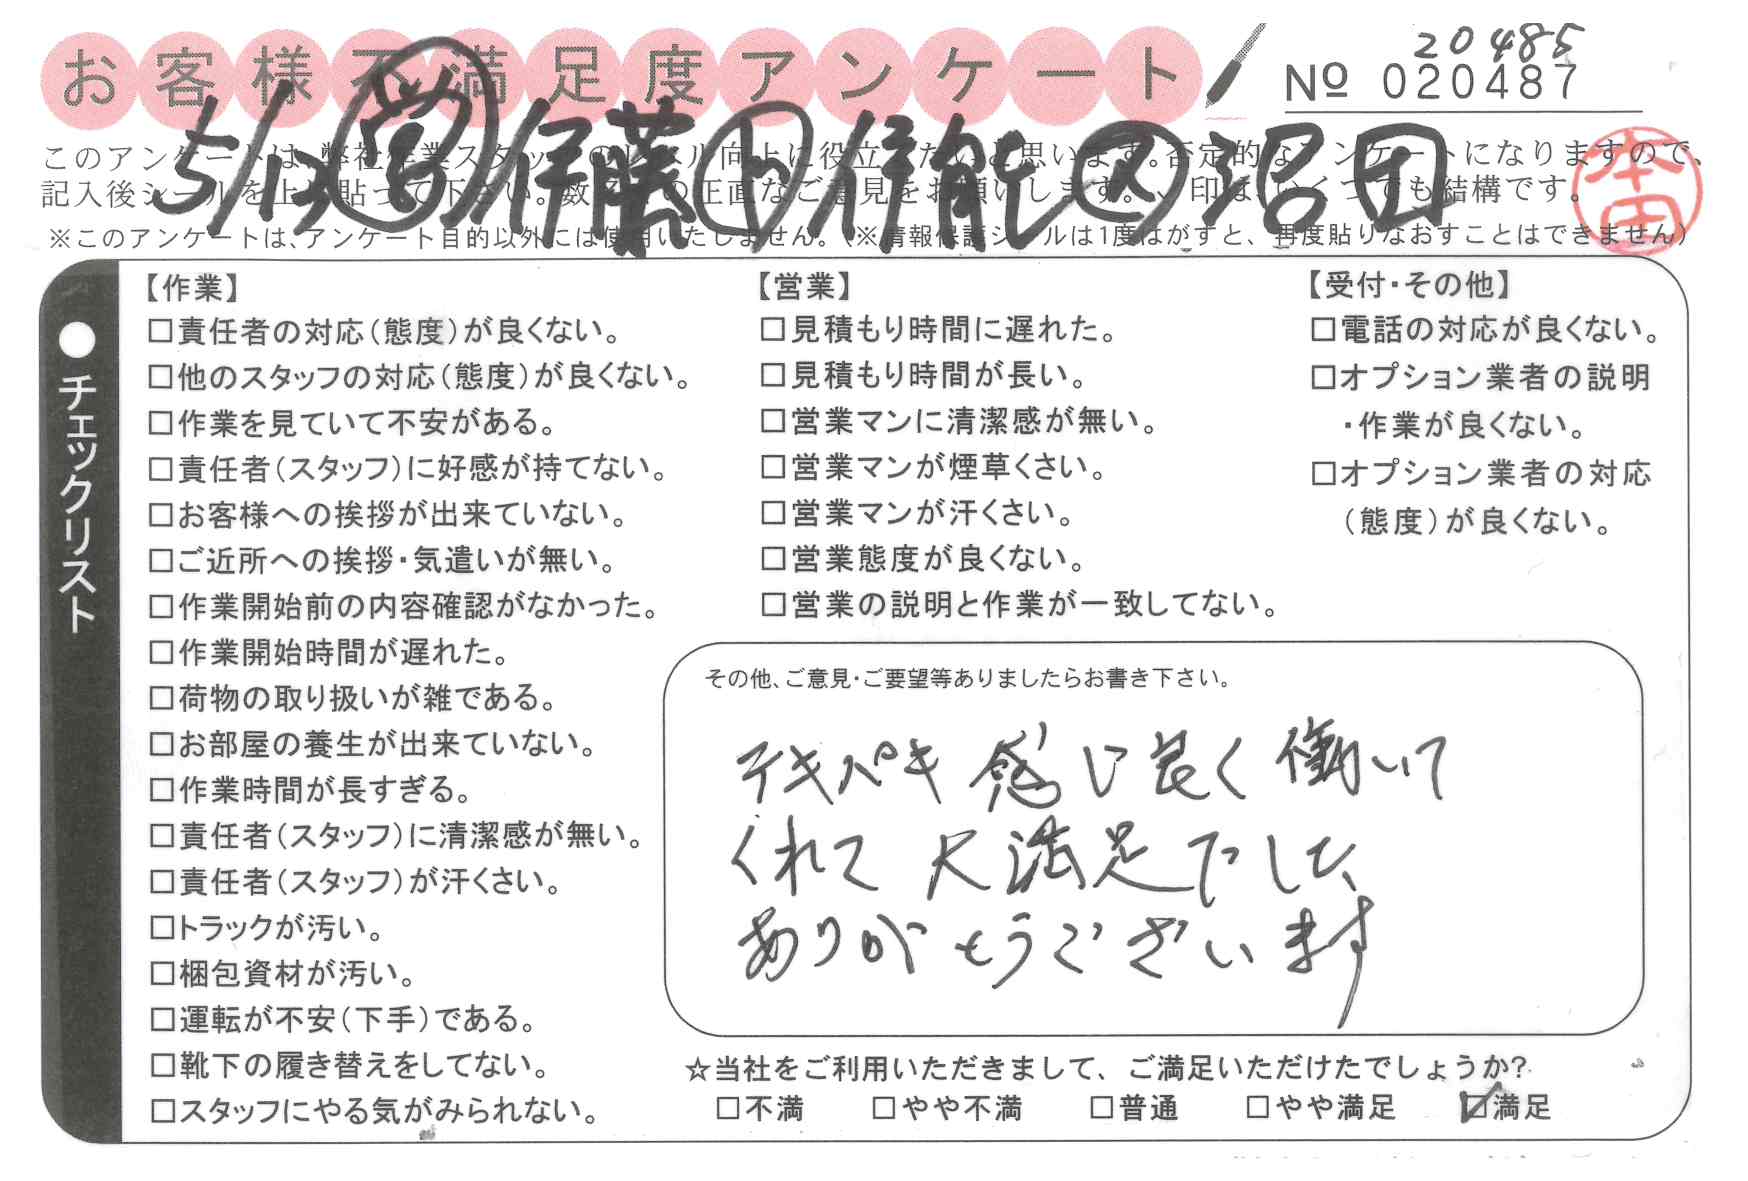 お客様不満足度アンケート
20485
№ 020487
5/12 営 伊藤 ト 信能 ス 沼田
このアンケートは、弊社作業スタッフのレベル向上に役立てたいと思います。否定的なアンケートになりますので、
記入後シールを上に貼って下さい。数多くの正直なご意見をお願いします。✓印は、いくつでも結構です。
本田
※このアンケートは、アンケート目的以外には使用いたしません。(※情報保護シールは1度はがすと、再度貼りなおすことはできません)
●チェックリスト
【作業】
□責任者の対応(態度)が良くない。
□他のスタッフの対応(態度)が良くない。
□作業を見ていて不安がある。
□責任者(スタッフ)に好感が持てない。
□お客様への挨拶が出来ていない。
□ご近所への挨拶・気遣いが無い。
□作業開始前の内容確認がなかった。
□作業開始時間が遅れた。
□荷物の取り扱いが雑である。
□お部屋の養生が出来ていない。
□作業時間が長すぎる。
□責任者(スタッフ)に清潔感が無い。
□責任者(スタッフ)が汗くさい。
□トラックが汚い。
□梱包資材が汚い。
□運転が不安(下手)である。
□靴下の履き替えをしてない。
□スタッフにやる気がみられない。
【営業】
□見積もり時間に遅れた。
□見積もり時間が長い。
□営業マンに清潔感が無い。
□営業マンが煙草くさい。
□営業マンが汗くさい。
□営業態度が良くない。
□営業の説明と作業が一致してない。
【受付・その他】
□電話の対応が良くない。
□オプション業者の説明
・作業が良くない。
□オプション業者の対応
(態度)が良くない。
その他、ご意見・ご要望等ありましたらお書き下さい。
テキパキ 感じ良く 働いて
くれて 大満足でした
ありがとうございます
☆当社をご利用いただきまして、ご満足いただけたでしょうか?
□不満 □やや不満 □普通 □やや満足 ☑満足